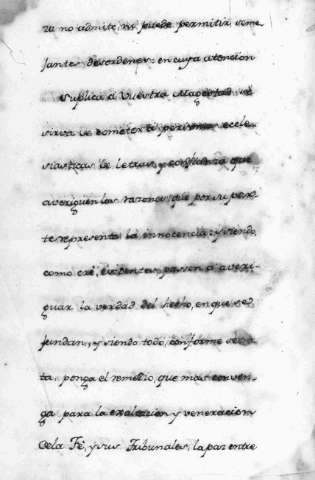 ra no admite, ni puede permitir seme
jantes desordenes; en cuya atencion
Suplica à Vuestra Magestad se
sirva de cometer à personas ecele-
siasticas de letras, y confianza que
averiguen las razones que por su par-
te representa la innocencia: y siendo,
como cré, evidentes, passen a averi-
guar la verdad del hecho, en que se
fundan, y siendo todo, conforme rela
ta, ponga el remedio, que mas conven-
ga para la exaltacion y veneracion,
de la Fé, y sus Tribunales, la paz entre